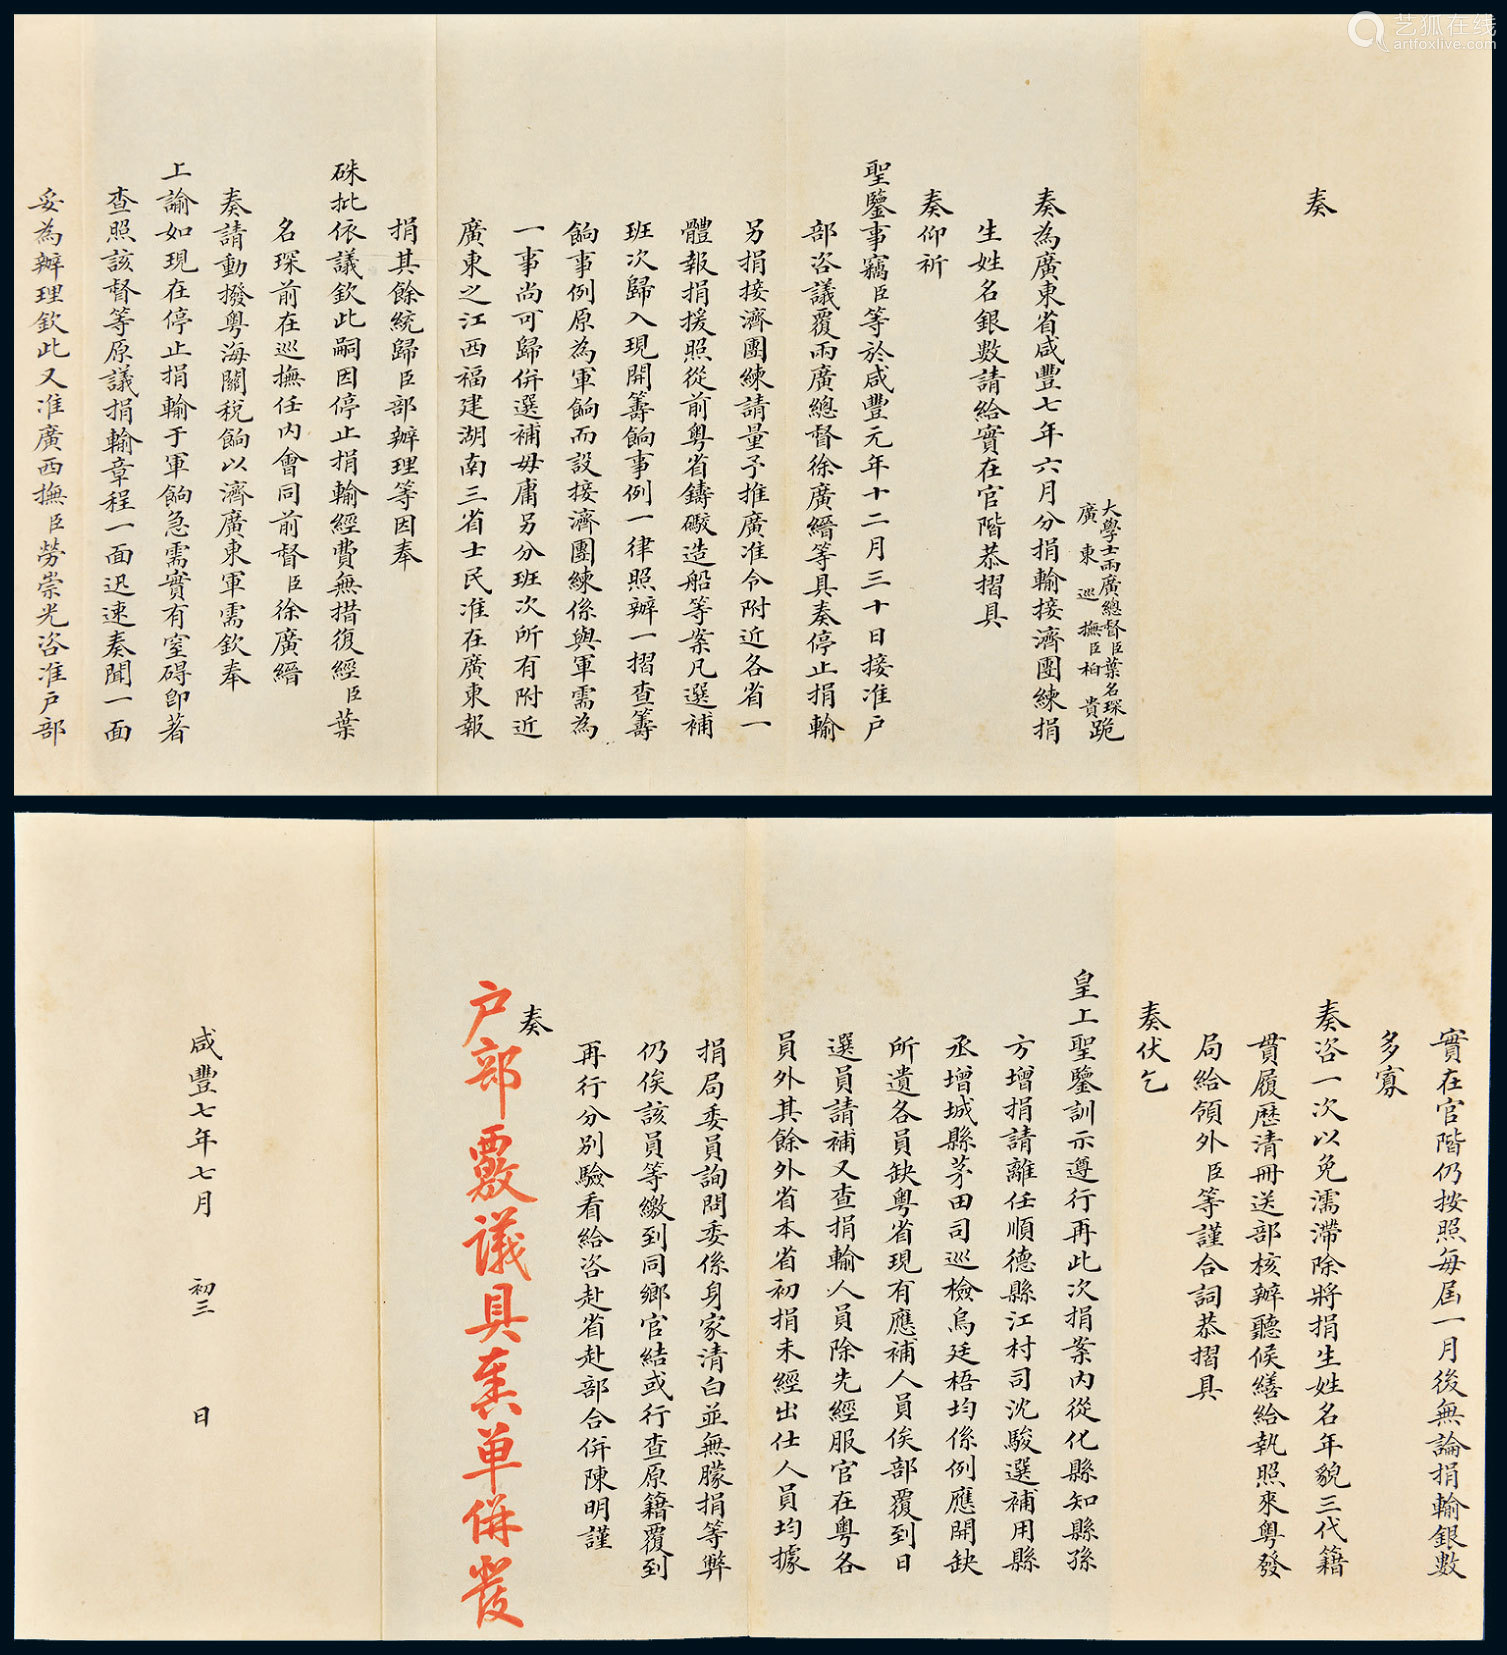 艺狐在线
artfoxlive.com
奏
大學士兩廣總督臣葉名琛
廣東巡撫臣柏貴
跪
奏為廣東省咸豐七年六月分捐輸接濟團練捐
生姓名銀數請給實在官階恭摺具
奏仰祈
聖鑒事竊臣等於咸豐元年十二月三十日接准戶
部咨議覆兩廣總督徐廣縉等具奏停止捐輸
另捐接濟團練請量予推廣准令附近各省一
體報捐援照從前粵省鑄礮造船等案凡選補
班次歸入現開籌餉事例一律照辦一摺查籌
餉事例原為軍餉而設接濟團練係與軍需為
一事尚可歸併選補毋庸另分班次所有附近
廣東之江西福建湖南三省士民准在廣東報
捐其餘統歸臣部辦理等因奉
硃批依議欽此嗣因停止捐輸經費無措復經臣葉
名琛前在巡撫任內會同前督臣徐廣縉
奏請動撥粵海關稅餉以濟廣東軍需欽奉
上諭如現在停止捐輸于軍餉急需實有窒碍即著
查照該督等原議捐輸章程一面迅速奏聞一面
妥為辦理欽此又准廣西撫臣勞崇光咨准戶部
實在官階仍按照每屆一月後無論捐輸銀數
多寡
奏咨一次以免濡滯除將捐生姓名年貌三代籍
貫履歷清冊送部核辦聽候繕給執照來粵發
局給領外臣等謹合詞恭摺具
奏伏乞
皇上聖鑒訓示遵行再此次捐案內從化縣知縣孫
方增捐請離任順德縣江村司沈駿選補用縣
丞增城縣茅田司巡檢烏廷梧均係例應開缺
所遺各員缺粵省現有應補人員俟部覆到日
選員請補又查捐輸人員除先經服官在粵各
員外其餘外省本省初捐未經出仕人員均據
捐局委員詢問委係身家清白並無朦捐等弊
仍俟該員等繳到同鄉官結或行查原籍覆到
再行分別驗看給咨赴省赴部合併陳明謹
奏
戶部覈議具奏單併發
咸豐七年七月 初三 日